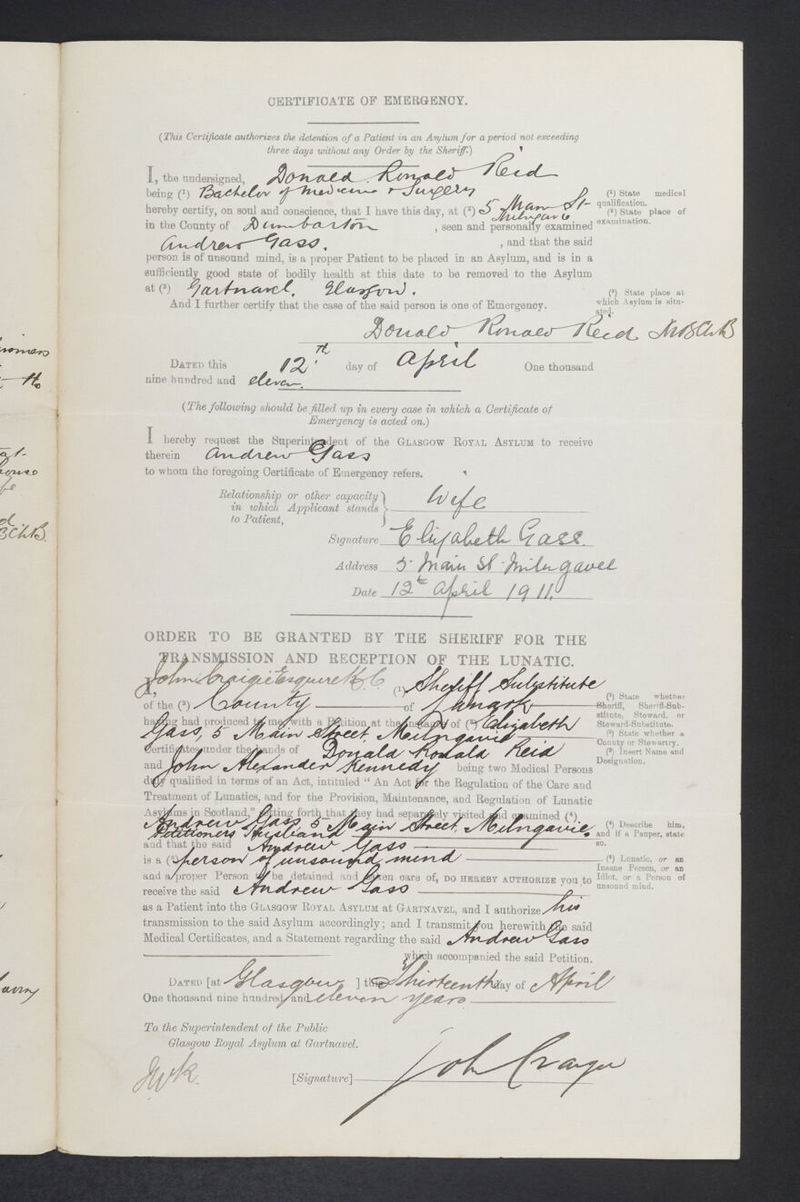 CERTIFICATE OF EMERGENCY.
(This Certificate authorizes the detention of a Patient in an Asylum for a period not exceeding
three days without any Order by the Sheriff.)
I, the undersigned, Donald Ronald Reid
being (¹) Bachelor of Medicine & Surgery
(¹) State medical
qualification.
hereby certify, on soul and conscience, that I have this day, at (²) 5 Main St
Milngavie
(²) State place of
examination.
in the County of Dumbarton , seen and personally examined
Andrew Gass. , and that the said
person is of unsound mind, is a proper Patient to be placed in an Asylum, and is in a
sufficiently good state of bodily health at this date to be removed to the Asylum
at (³) Gartnavel, Glasgow.
(³) State place at
which Asylum is situ-
ated.
And I further certify that the case of the said person is one of Emergency.
Donald Ronald Reid MBChB
DATED this 12th day of April One thousand
nine hundred and eleven.
(The following should be filled up in every case in which a Certificate of
Emergency is acted on.)
I hereby request the Superintendent of the GLASGOW ROYAL ASYLUM to receive
therein Andrew Gass
to whom the foregoing Certificate of Emergency refers.
Relationship or other capacity
in which Applicant stands
to Patient,
Wife
Signature Elizabeth Gass.
Address 5 Main St Milngavie
Date 12th April 1911.
ORDER TO BE GRANTED BY THE SHERIFF FOR THE
TRANSMISSION AND RECEPTION OF THE LUNATIC.
John Craigie Esquire K.C. (¹) Sheriff Substitute
of the (²) County of Lanark
(¹) State whether
Sheriff, Sheriff-Sub-
stitute, Steward, or
Steward-Substitute.
(²) State whether a
County or Stewartry.
(³) Insert Name and
Designation.
having had produced to me with a Petition at the instance of (³) Elizabeth
Gass, 5 Main Street, Milngavie
Certificates under the hands of Donald Ronald Reid
and John Alexander Kennedy being two Medical Persons
duly qualified in terms of an Act, intituled " An Act for the Regulation of the Care and
Treatment of Lunatics, and for the Provision, Maintenance, and Regulation of Lunatic
Asylums in Scotland," setting forth that they had separately visited and examined (⁴)
Andrew Gass, 5 Main Street, Milngavie,
Petitioners Husband
(⁴) Describe him,
and if a Pauper, state
so.
and that the said Andrew Gass
is a (⁵) person of unsound mind
(⁵) Lunatic, or an
Insane Person, or an
Idiot, or a Person of
unsound mind.
and a proper Person to be detained and taken care of, DO HEREBY AUTHORIZE you to
receive the said Andrew Gass
as a Patient into the GLASGOW ROYAL ASYLUM at GARTNAVEL, and I authorize his
transmission to the said Asylum accordingly; and I transmit you herewith the said
Medical Certificates, and a Statement regarding the said Andrew Gass
which accompanied the said Petition.
DATED [at Glasgow ] this Thirteenth day of April
One thousand nine hundred and eleven years
To the Superintendent of the Public
Glasgow Royal Asylum at Gartnavel.
[Signature] John Craigie